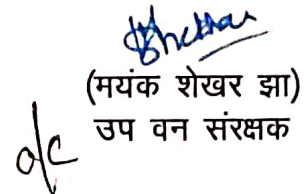 (मयंक शेखर झा)
उप वन संरक्षक
o/c